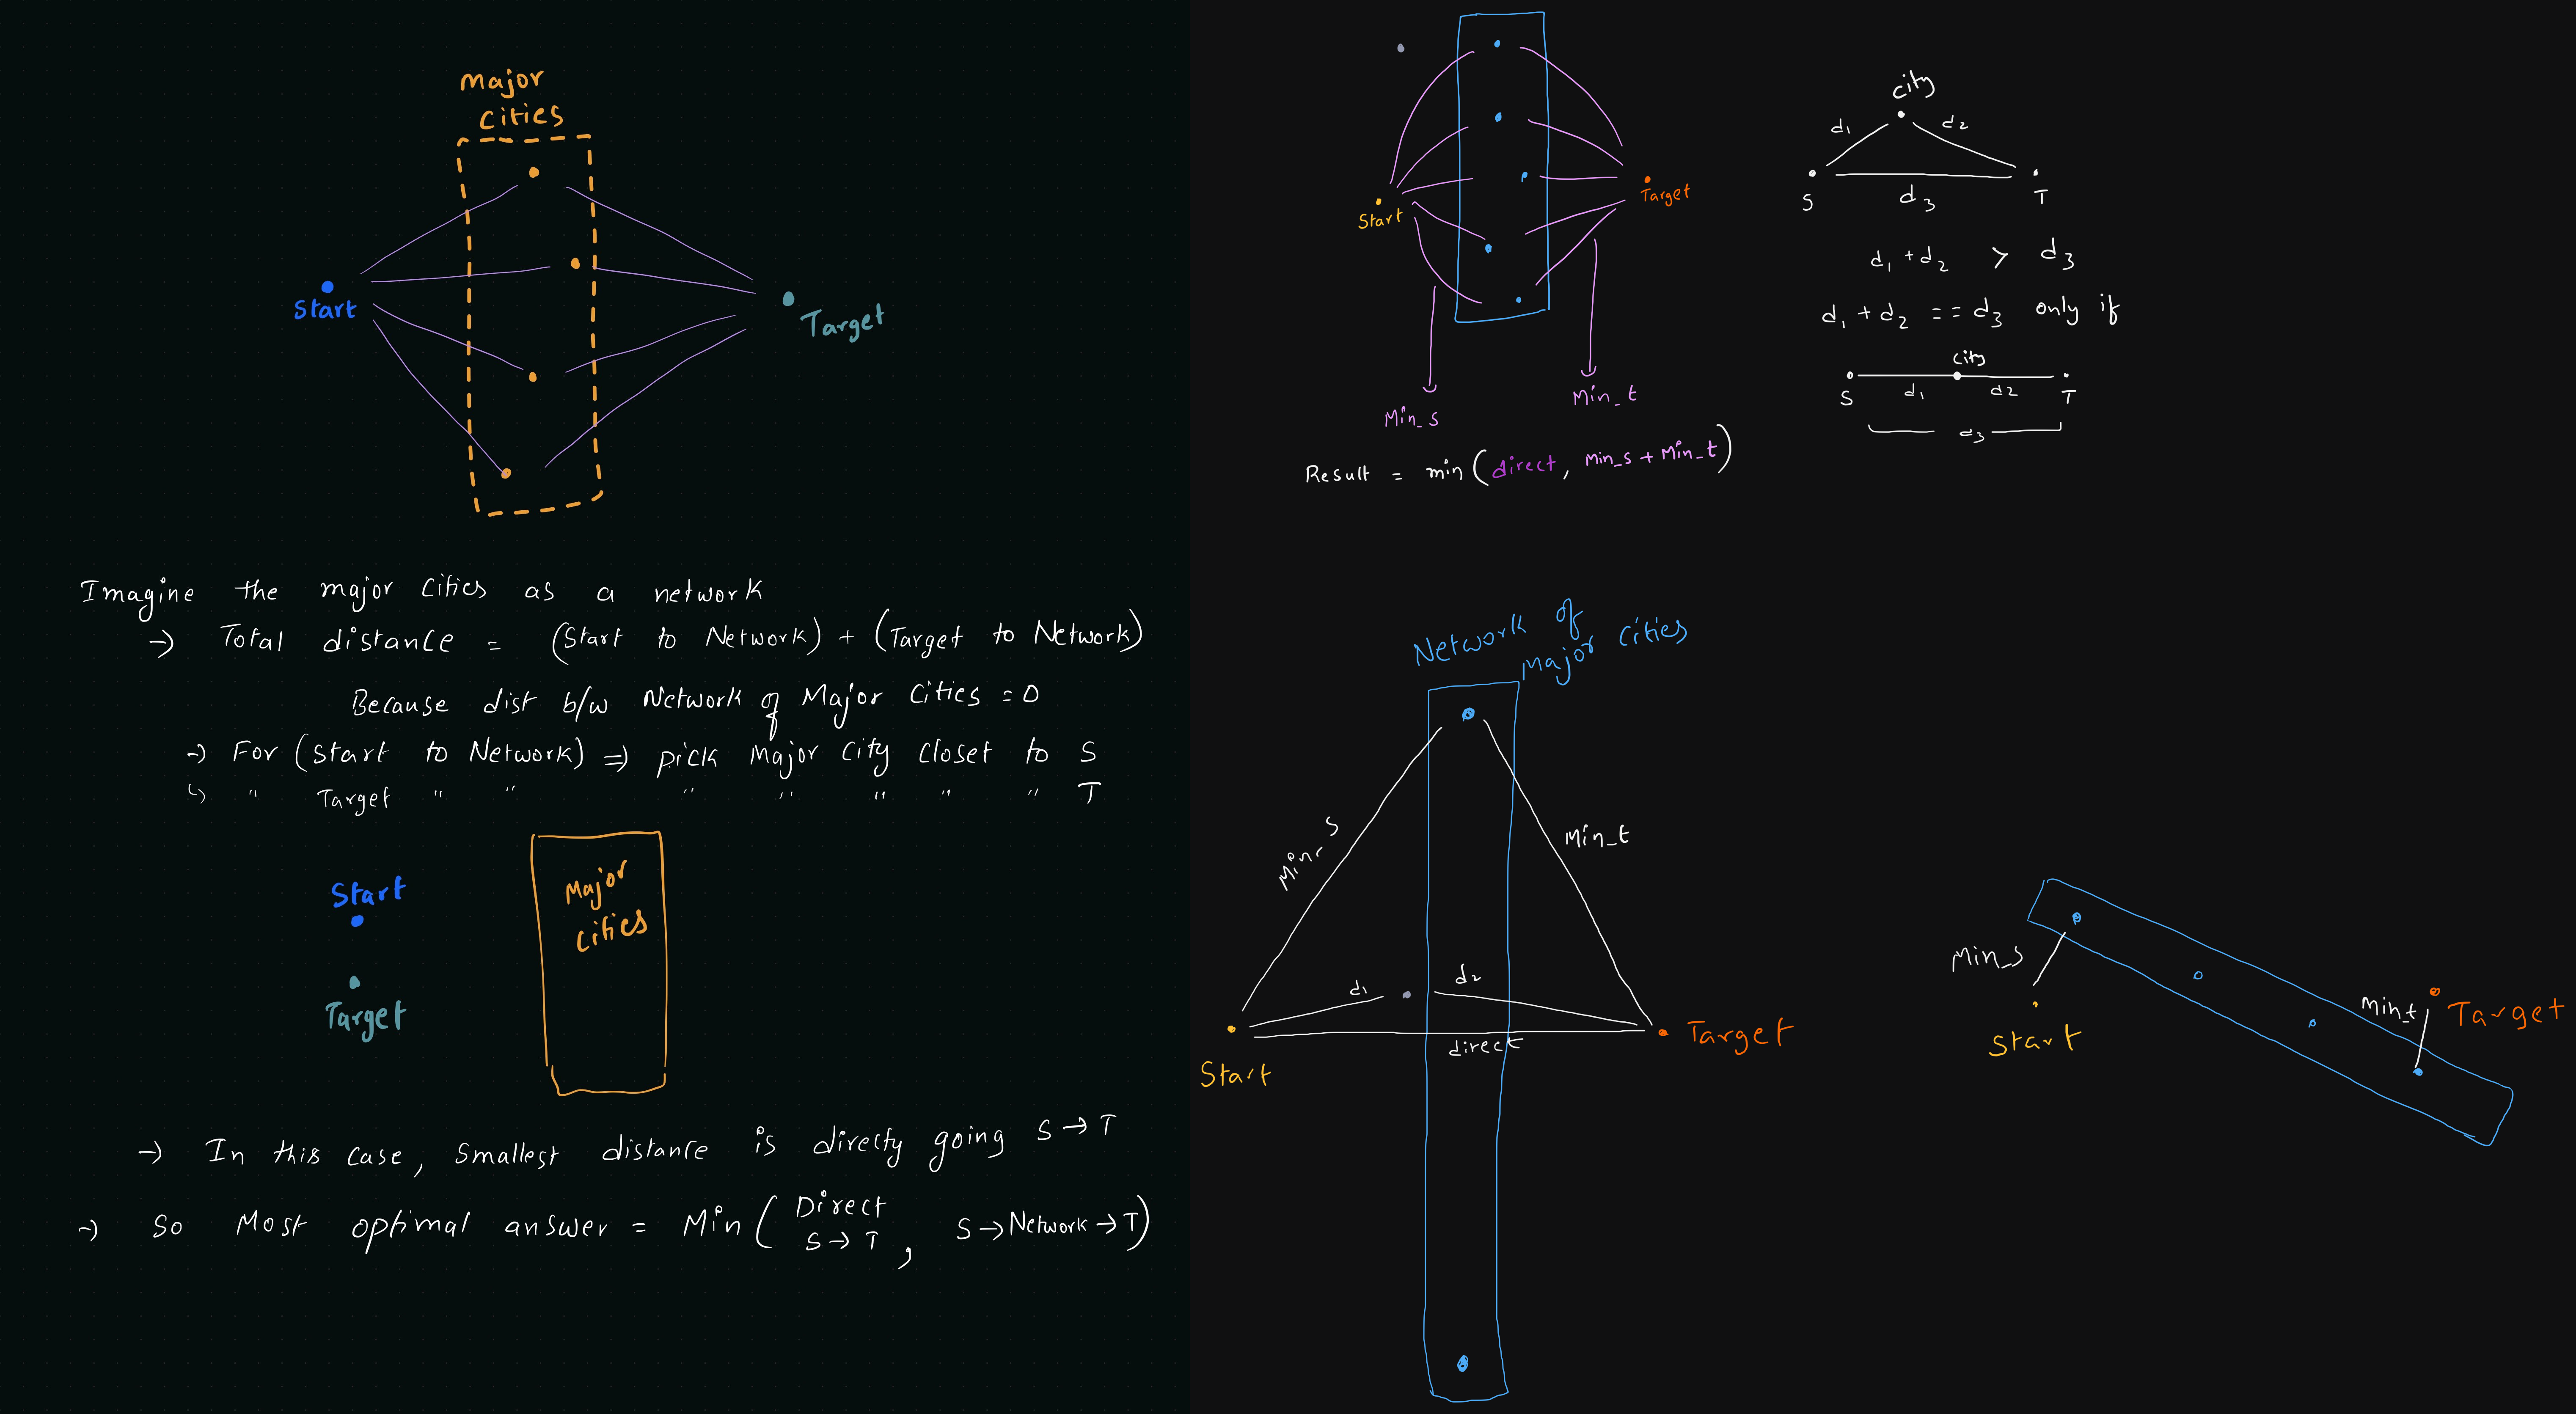 Major
Cities
Start
Target
Imagine the major cities as a network
→ Total distance = (Start to Network) + (Target to Network)
Because dist b/w Network of Major Cities = 0
→ For (Start to Network) ⇒ pick Major City closet to S
↳ " Target " " " " " " " T
Start
Target
Major
Cities
→ In this case, smallest distance is directy going S → T
→ So Most optimal answer = Min ( Direct S → T , S → Network → T )
Start
Target
Min_s
Min_t
Result = min ( direct, Min_s + Min_t )
city
d1
d2
S
d3
T
d1 + d2 > d3
d1 + d2 == d3 only if
city
S
d1
d2
T
d3
Network of
Major Cities
Min_s
Min_t
d1
d2
direct
Start
Target
Min_s
Start
Min_t
Target